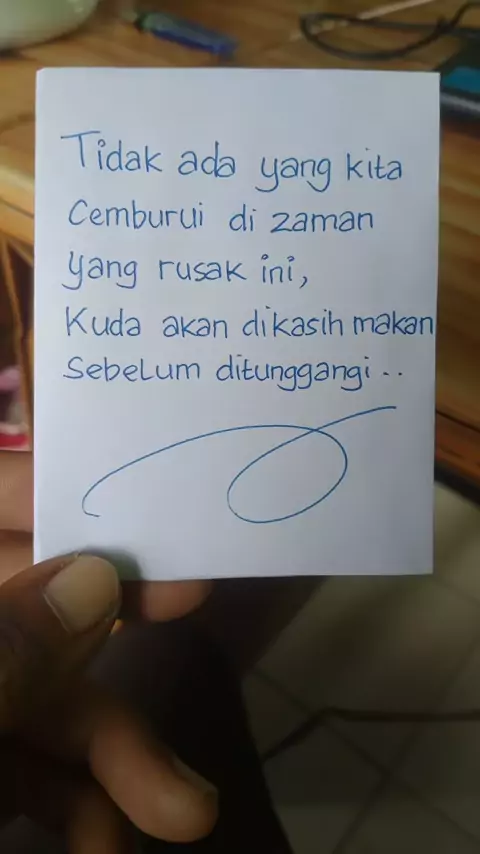 Tidak ada yang kita
Cemburui di zaman
yang rusak ini,
Kuda akan dikasih makan
Sebelum ditunggangi..